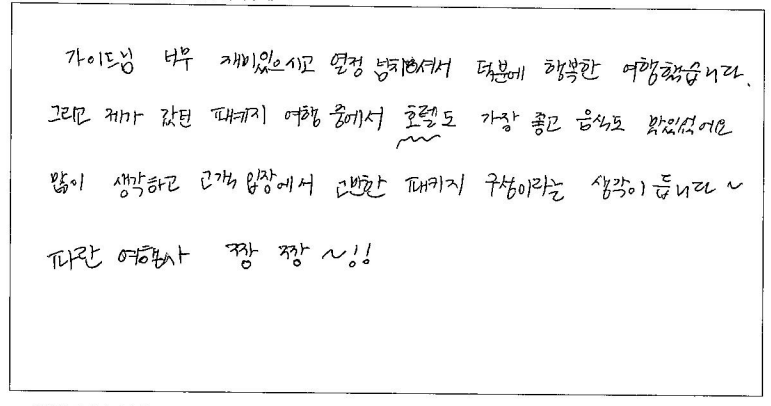 가이드님 너무 재미있으시고 열정 넘치셔서 덕분에 행복한 여행했습니다.
그리고 제가 갔던 패키지 여행 중에서 호텔도 가장 좋고 음식도 맛있었어요
많이 생각하고 고객 입장에서 고반한 패키지 구성이라는 생각이 듭니다~
파란 여행사 짱 짱 ~!!